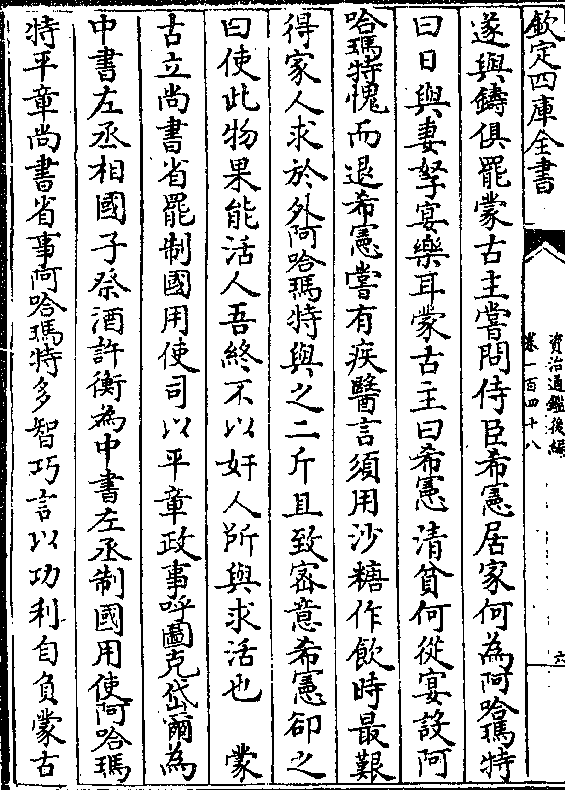 欽定四庫全書
資治通鑑後編
卷一百四十八
六
遂與鑄俱罷蒙古主嘗問侍臣希憲居家何為阿哈瑪特
曰日與妻孥宴樂耳蒙古主曰希憲清貧何從宴設阿
哈瑪特愧而退希憲嘗有疾醫言須用沙糖作飲時最艱
得家人求於外阿哈瑪特與之二斤且致密意希憲卻之
曰使此物果能活人吾終不以奸人所與求活也　蒙
古立尚書省罷制國用使司以平章政事呼圖克岱爾為
中書左丞相國子祭酒許衡為中書左丞制國用使阿哈瑪
特平章尚書省事阿哈瑪特多智巧言以功利自負蒙古